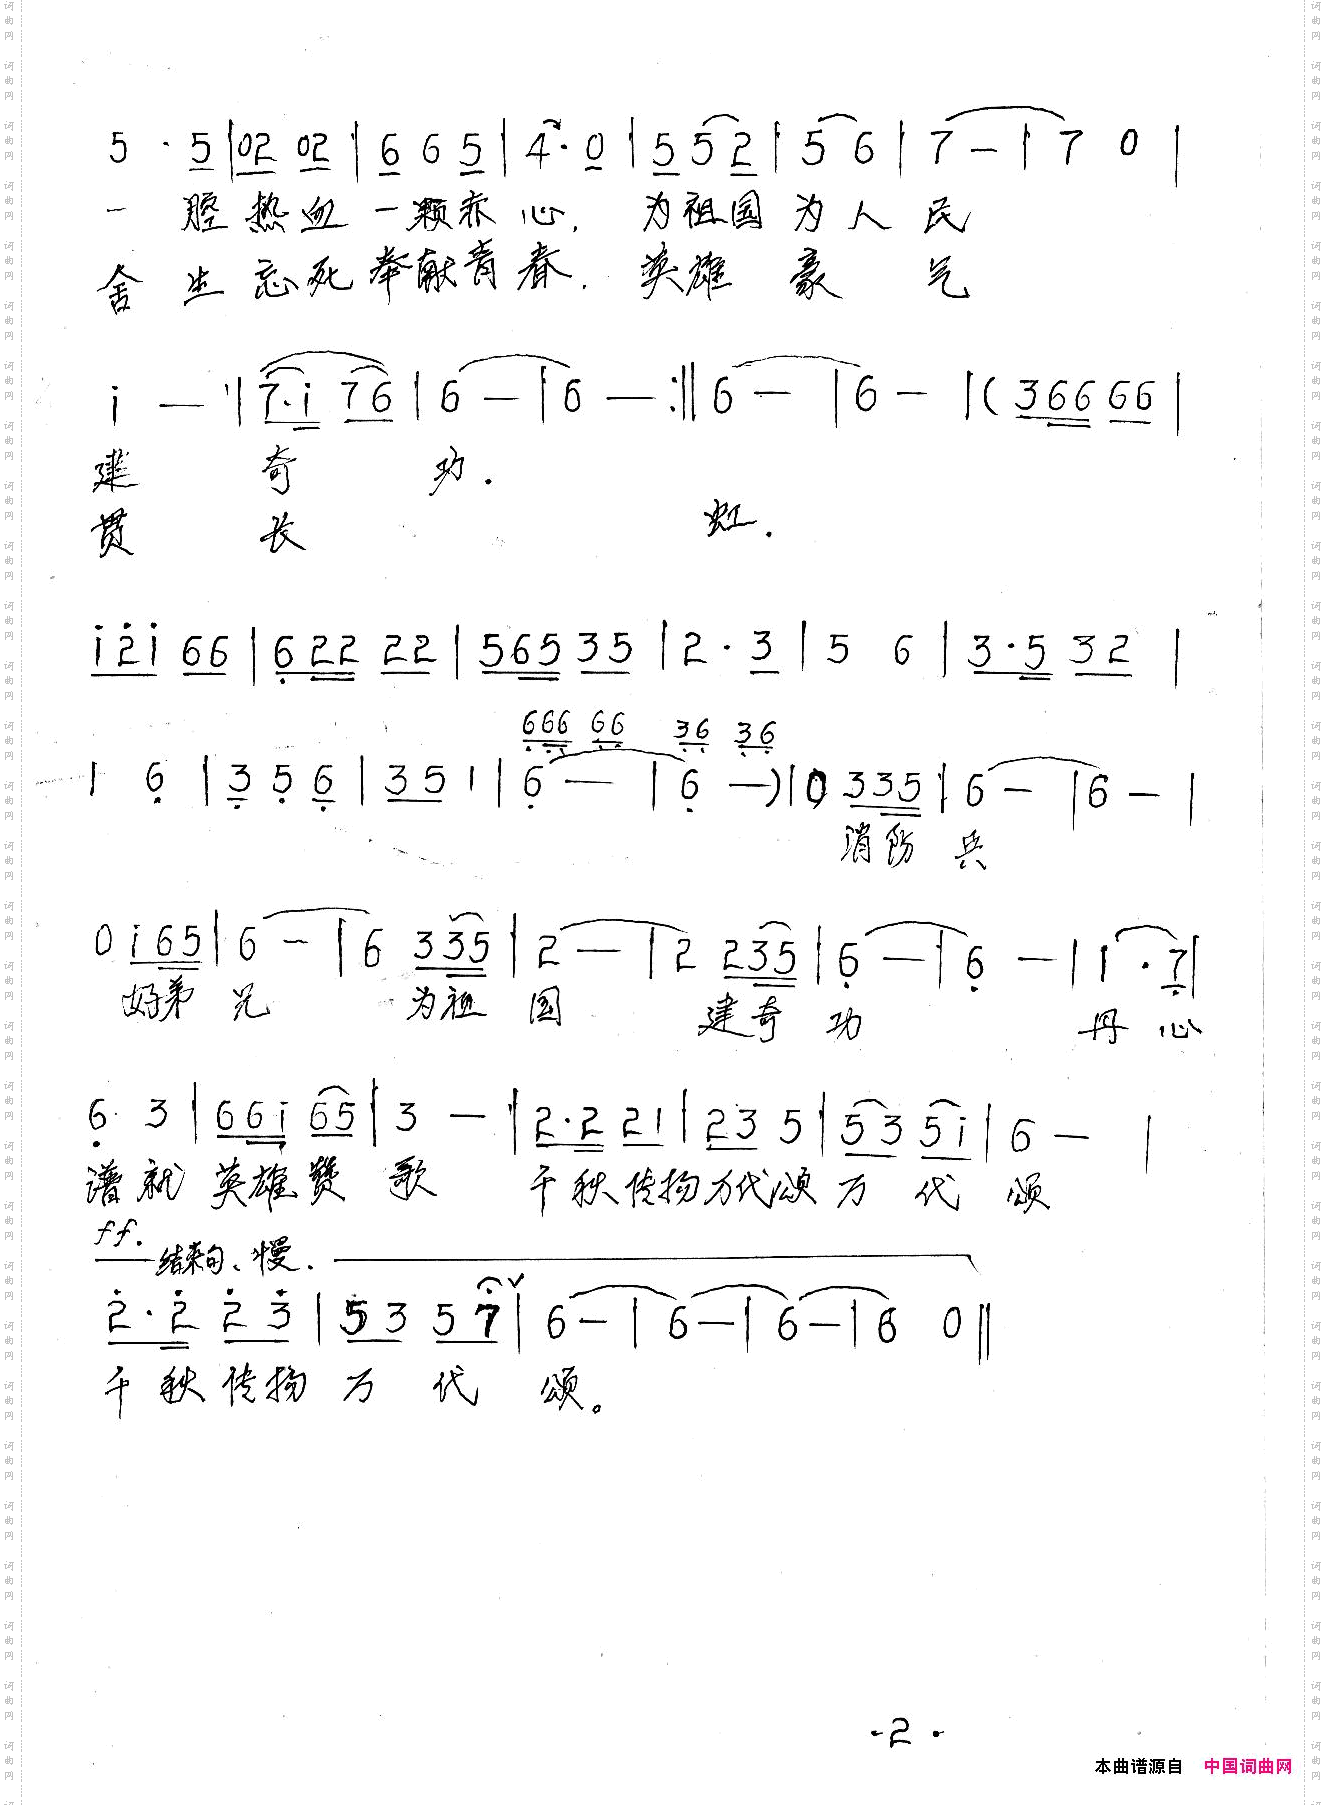 5 · 5 | 02 02 | 6 6 5 | 4 · 0 | 5 5 2 | 5 6 | 7 — | 7 0 |
一 腔 热 血 一 颗 赤 心, 为 祖 国 为 人 民
舍 生 忘 死 奉 献 青 春, 英 雄 豪 气
i — | 7·i 76 | 6 — | 6 — :|| 6 — | 6 — | ( 366 66 |
建 奇 功.
贯 长 虹.
i2i 66 | 622 22 | 565 35 | 2 · 3 | 5 6 | 3·5 32 |
666 66 36 36
1 6 | 3 5 6 | 35 1 | 6 — | 6 — ) | 0 335 | 6 — | 6 — |
消 防 兵
0 i65 | 6 — | 6 335 | 2 — | 2 235 | 6 — | 6 — | 1 · 7 |
好 弟 兄 为 祖 国 建 奇 功 丹 心
6 3 | 66i 65 | 3 — | 2·2 21 | 23 5 | 53 5i | 6 — |
谱 就 英 雄 赞 歌 千 秋 传 扬 万 代 颂 万 代 颂
ff. 结束句、慢.
2·2 23 | 53 57 | 6 — | 6 — | 6 — | 6 0 ||
千 秋 传 扬 万 代 颂。
·2·
本曲谱源自 中国词曲网